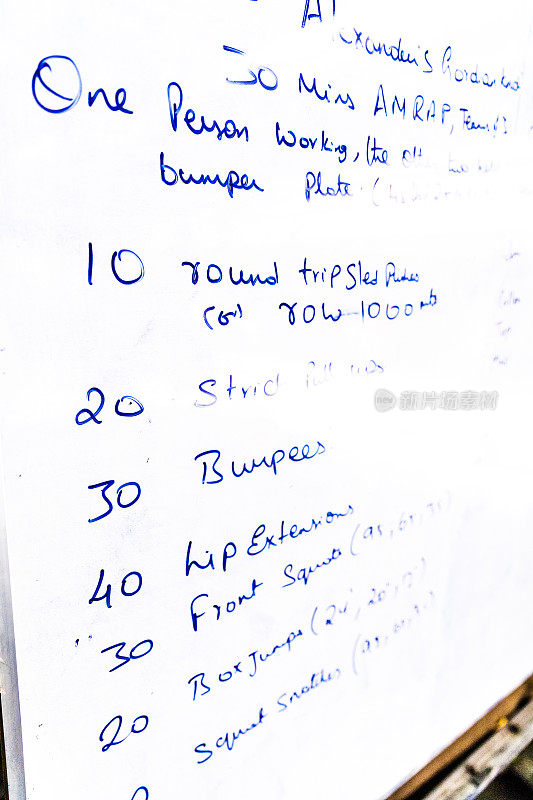 Alexander's Gordian knot
30 Mins AMRAP, Team of 3
One Person Working, (the other two hold
bumper Plate (
10 round trip Sled Pushes
(or) row 1000 mts
20 Strict Pull ups
30 Burpees
40 hip Extensions
30 Front Squats (95, 65, 35)
20 Box Jumps (24", 20", 12")
Squat Snatches (95, 65, 35)
new 新片场素材